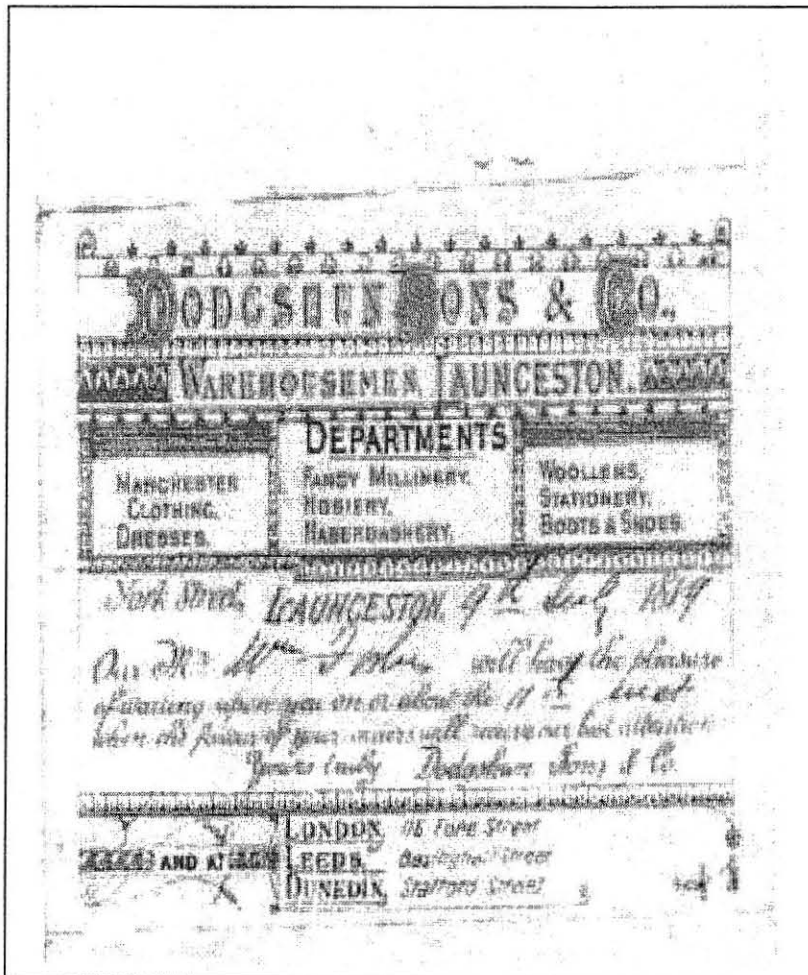 DODGSHUN SONS & CO.,
WAREHOUSEMEN, LAUNCESTON.
DEPARTMENTS
MANCHESTER
CLOTHING,
DRESSES,
FANCY MILLINERY,
HOSIERY,
HABERDASHERY,
WOOLLENS,
STATIONERY,
BOOTS & SHOES.
York Street, LAUNCESTON, 9th July
Our Mr will have the pleasure
of waiting upon you on or about the inst
when the favor of your orders will receive our best attention
Yours truly Dodgshun Sons & Co.
AND AT
LONDON, Fore Street
LEEDS, Street
DUNEDIN, Stafford Street